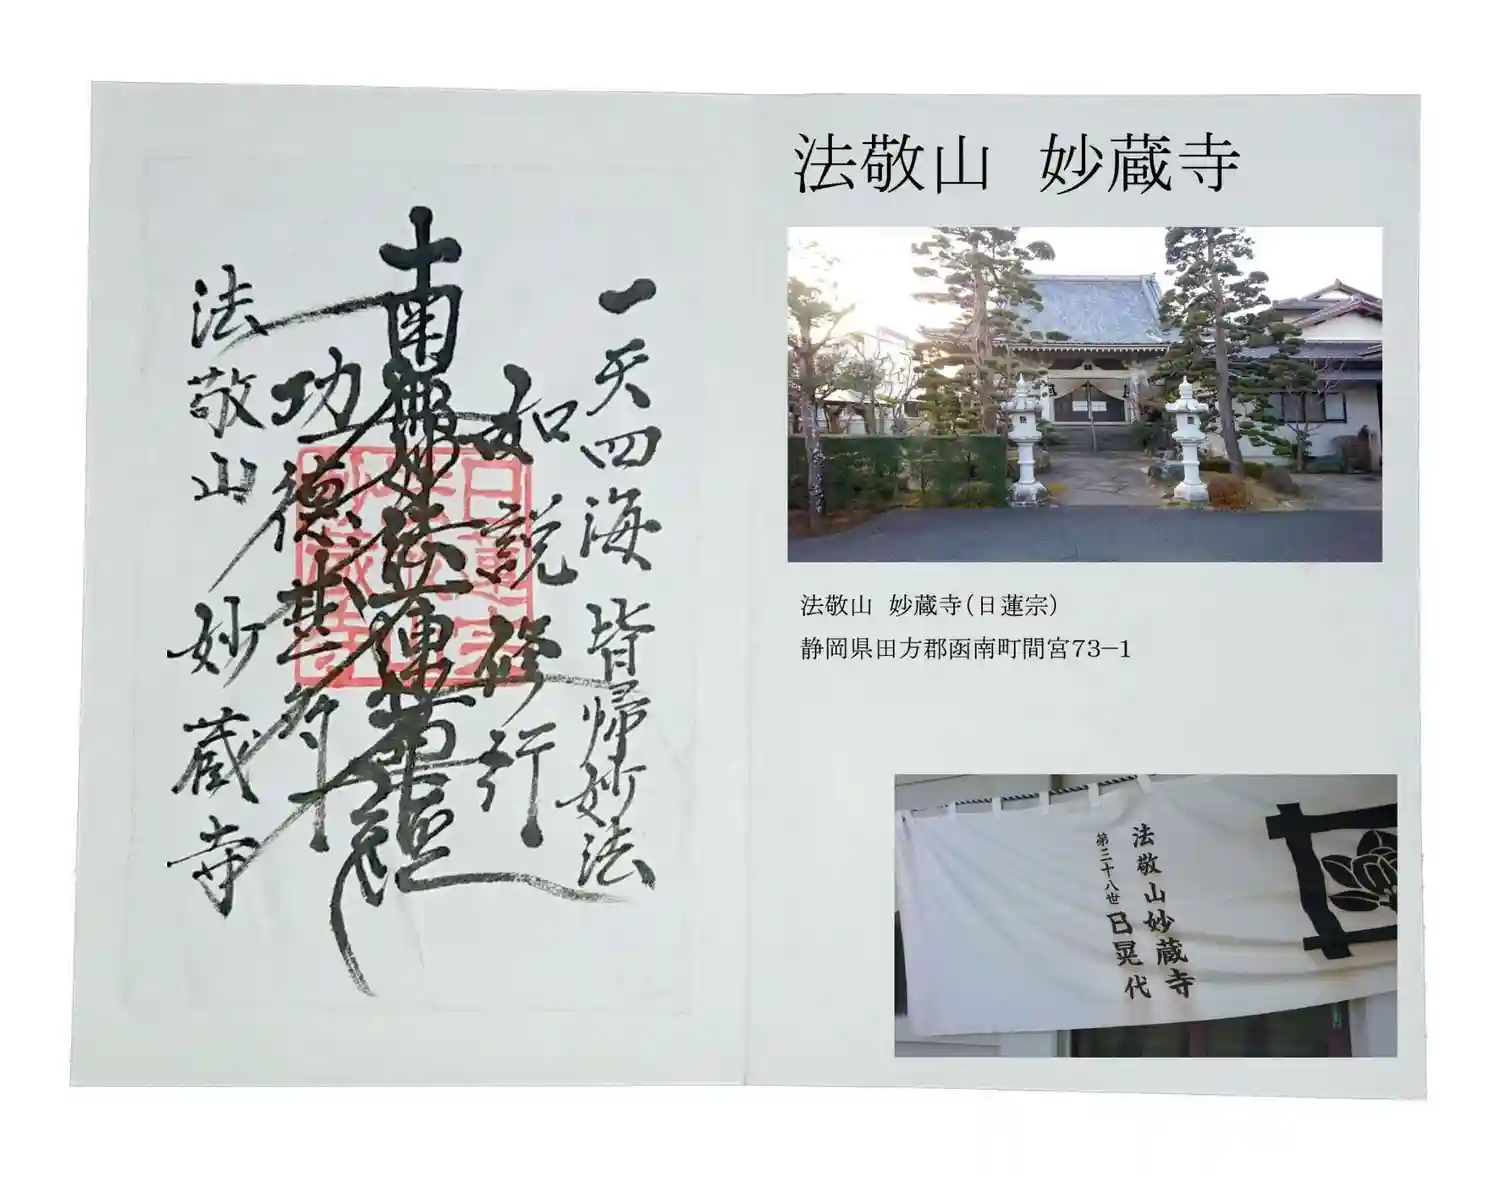 一天四海皆帰妙法
如説修行
南無妙法蓮華経
功徳甚多
法敬山 妙蔵寺
日蓮宗
妙蔵寺
法敬山 妙蔵寺
法敬山 妙蔵寺(日蓮宗)
静岡県田方郡函南町間宮73−1
法敬山妙蔵寺
第三十八世 日晃代